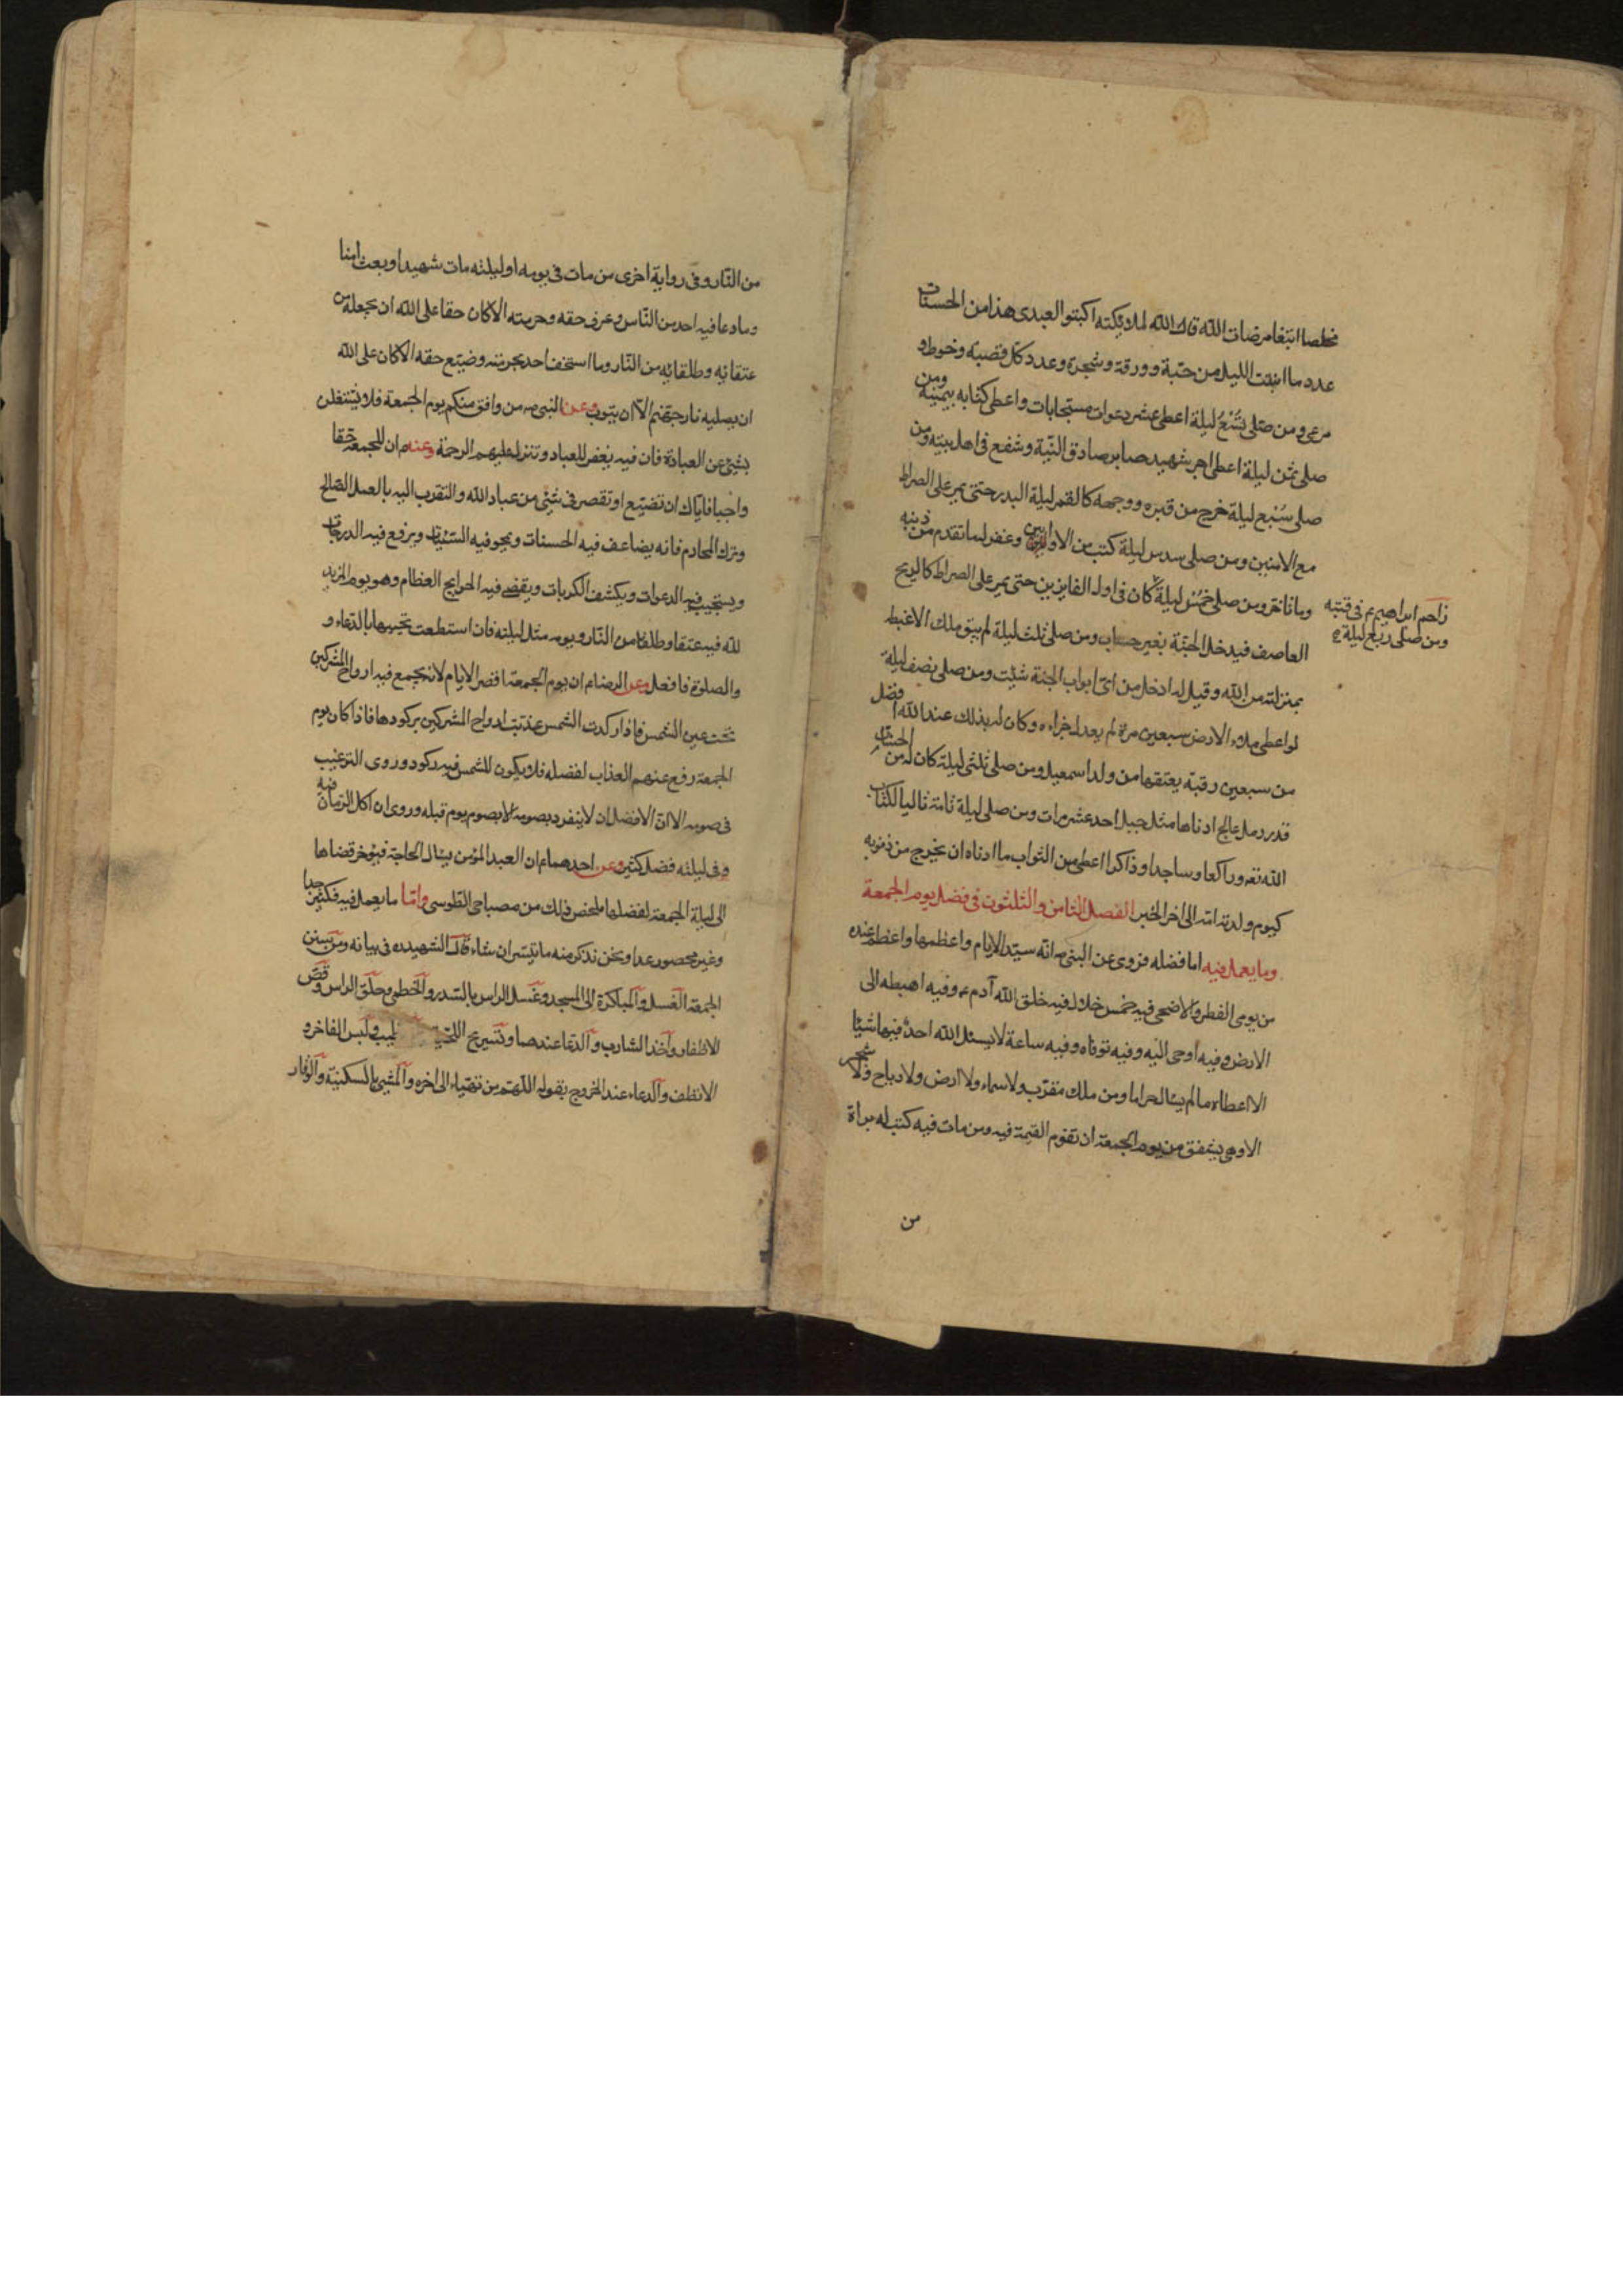 مخلصا ابتغا مرضات الله قال الله لملائكته اكبتوا لعبدى هذا من الحسنات
عدد ما انبتت الليل من حبة وورقة وشجرة وعدد كل قصبة وخوط و
مرعى ومن صلى تُسْعُ ليلة اعطى عشر دعوات مستجابات واعطى كتابه بيمينه ومن
صلى ثمن ليلة اعطى اجر شهيد صابر صادق النية وشفع فى اهل بيته ومن
صلى سُبع ليلة خرج من قبره ووجهه كالقمر ليلة البدر حتى يمر على الصراط
مع الامنين ومن صلى سدس ليلة كتب من الاوابين وغفر له ما تقدم من ذنبه
وما تاخر ومن صلى خمُس ليلة كان فى اول الفايزين حتى يمر على الصراط كالريح
زاحم ابراهيم ع فى قبته
ومن صلى ربع ليلة
العاصف فيدخل الجنة بغير حساب ومن صلى ثلث ليلة لم يبق ملك الا غبط
بمنزلته من الله وقيل له ادخل من اى ابواب الجنة شئت ومن صلى نصف ليلة
لو اعطى ملاء الارض سبعين مرة لم يعدل جزاءه وكان له بذلك عند الله افضل
من سبعين رقبة يعتقها من ولد اسمعيل ومن صلى ثلثى ليلة كان له من الحسنات
قدر رمل عالج ادناها مثل جبل احد عشر مرات ومن صلى ليلة تامة تاليا لكتاب
الله تعه وراكعا وساجدا وذاكرا اعطى من الثواب ما ادناه ان يخرج من ذنوبه
كيوم ولدته امه الى اخر الخبر الفصل الثامن والثلثون فى فضل يوم الجمعة
وما يعمل فيه اما فضله فروى عن النبى ص انه سيد الايام واعظمها واعظم عنده
من يومى الفطر والاضحى فيه خمس خلال فيه خلق الله آدم ع وفيه اهبطه الى
الارض وفيه اوحى اليه وفيه توفاه وفيه ساعة لا يسئل الله احد فيها شيئا
الا اعطاه ما لم يسال حراما ومن ملك مقرب ولا سماء ولا ارض ولا رياح ولا شجر
الا وهى يشفق من يوم الجمعة ان تقوم القيمة فيه ومن مات فيه كتب له براة
من
من النار وفى رواية اخرى من مات فى يومه او ليلته مات شهيدا وبعث امنا
وما دعا فيه احد من الناس وعرف حقه وحرمته الا كان حقا على الله ان يجعله من
عتقائه وطلقائه من النار وما استخف احد بحرمته وضيع حقه الا كان على الله
ان يصليه نار جهنم الا ان يتوب وعن النبى ص من وافق منكم يوم الجمعة فلا يشتغلن
بشئ عن العبادة فان فيه يغفر للعباد وتنزل عليهم الرحمة وعنه ع ان للجمعة حقا
واجبا فاياك ان تضيع او تقصر فى شئ من عباد الله والتقرب اليه بالعمل الصالح
وترك المحارم فانه يضاعف فيه الحسنات ويمحو فيه السيئات ويرفع فيه الدرجات
ويستجيب فيه الدعوات ويكشف الكربات ويقضى فيه الحوايج العظام وهو يوم المزيد
لله فيه عتقا وطلقا من النار ويومه مثل ليلته فان استطعت تحييها بالدعاء و
والصلوة فافعل وعن الرضا ع ان يوم الجمعة اقصر الايام لانه يجمع فيه ارواح المشركين
تحت عين الشمس فاذا ركدت الشمس عذبت ارواح المشركين بركودها فاذا كان يوم
الجمعة رفع عنهم العذاب لفضله فلا يكون للشمس فيه ركود وروى الترغيب
فى صومه الا ان الافضل ان لا ينفرد بصومه الا بصوم يوم قبله وروى ان اكل الرمان فيه
وفى ليلته فضل كثير وعن احدهما ع ان العبد المؤمن يسال الحاجة فيؤخر قضاها
الى ليلة الجمعة لفضلها ملخص ذلك من مصباحى الطوسى واما ما يعمل فيه فكثير جدا
وغير محصور عدا ونحن نذكر منه ما تيسر ان شاء قال الشهيد ره فى بيانه ومن سنن
الجمعة الغسل والمباكرة الى المسجد وغسل الراس بالسدر والخطمى وحلق الراس وقص
الاظفار واخذ الشارب والدعا عندها وتسريح اللحية ولبس الفاخر و
الانظف والدعاء عند الخروج بقوله اللهم من تهيأ الى اخره والمشى بالسكينة والوقار